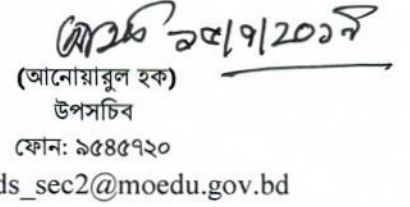 (আনোয়ারুল হক)
উপসচিব
ফোন: ৯৫৪৫৭২০
ds_sec2@moedu.gov.bd